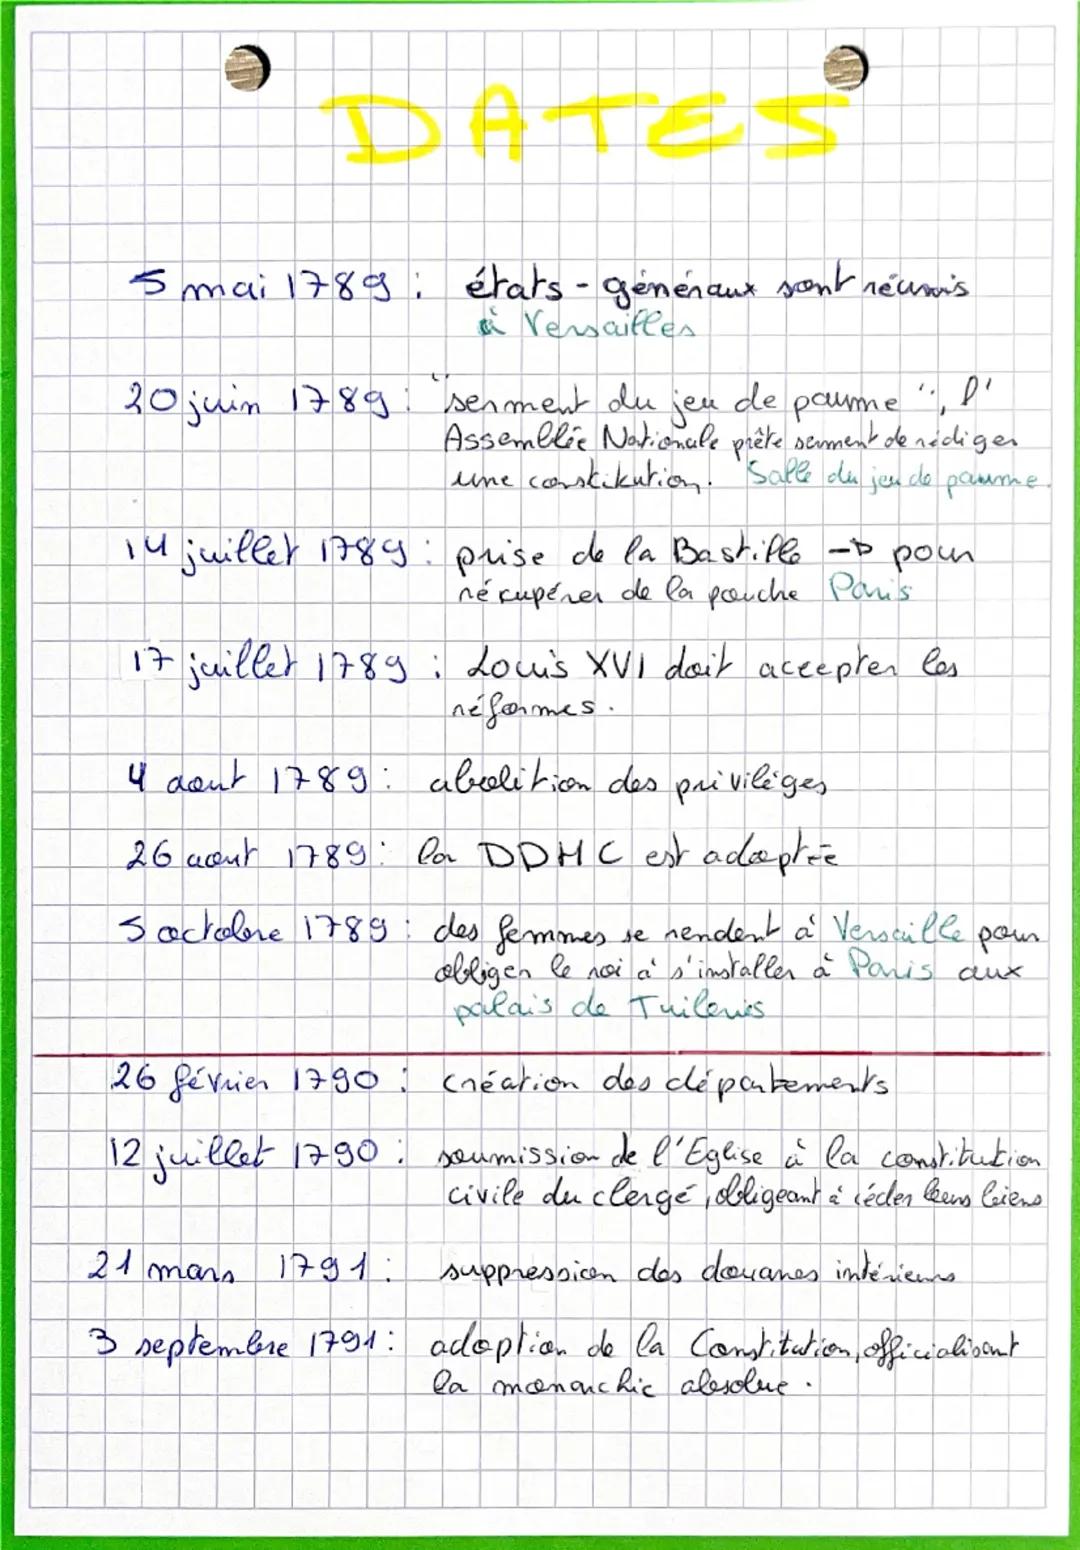 DATES
5 mai 1789 : états - généraux sont réunis
à Versailles
20 juin 1789 : "serment du jeu de paume", l'
Assemblée Nationale prête serment de rédiger
une constitution. Salle du jeu de paume.
14 juillet 1789 : prise de la Bastille -> pour
récupérer de la pouche Paris
17 juillet 1789 : Louis XVI doit accepter les
réformes.
4 aout 1789 : abolition des privilèges
26 aout 1789 : la DDHC est adoptée
5 octobre 1789 : des femmes se rendent à Versaille pour
obliger le roi à s'installer à Paris aux
palais de Tuileries
26 février 1790 : création des départements
12 juillet 1790 : soumission de l'Eglise à la constitution
civile du clergé, obligeant à céder leurs biens
21 mars 1791 : suppression des douanes intérieurs
3 septembre 1791 : adoption de la Constitution, officialisant
la monarchie absolue.